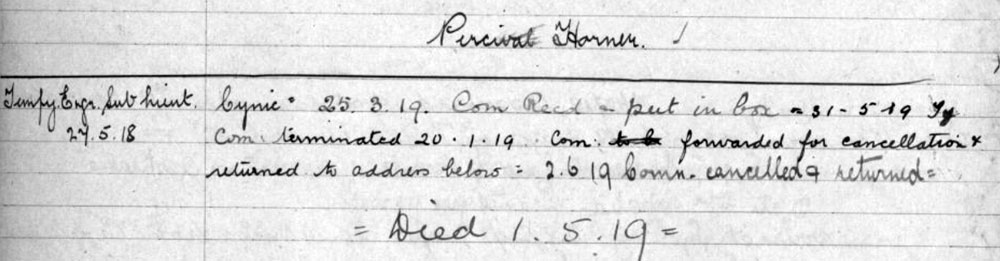 Percival Horner.
Tempy. Engr. Sub Lieut.
27.5.18
Cynic = 25.3.19. Com Recd = put in box = 31-5-19 Ty
Com: terminated 20.1.19 Com: to be forwarded for cancellation &
returned to address below = 2.6.19 Comn. cancelled & returned =
= Died 1.5.19 =